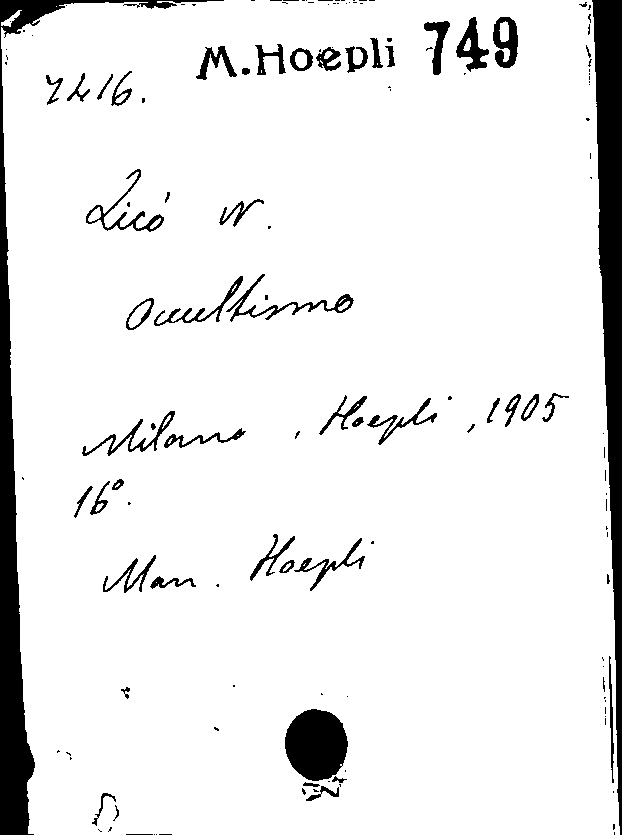 M.Hoepli 749
7216.
Licó N.
Occultismo
Milano, Hoepli, 1905
16°.
Man. Hoepli